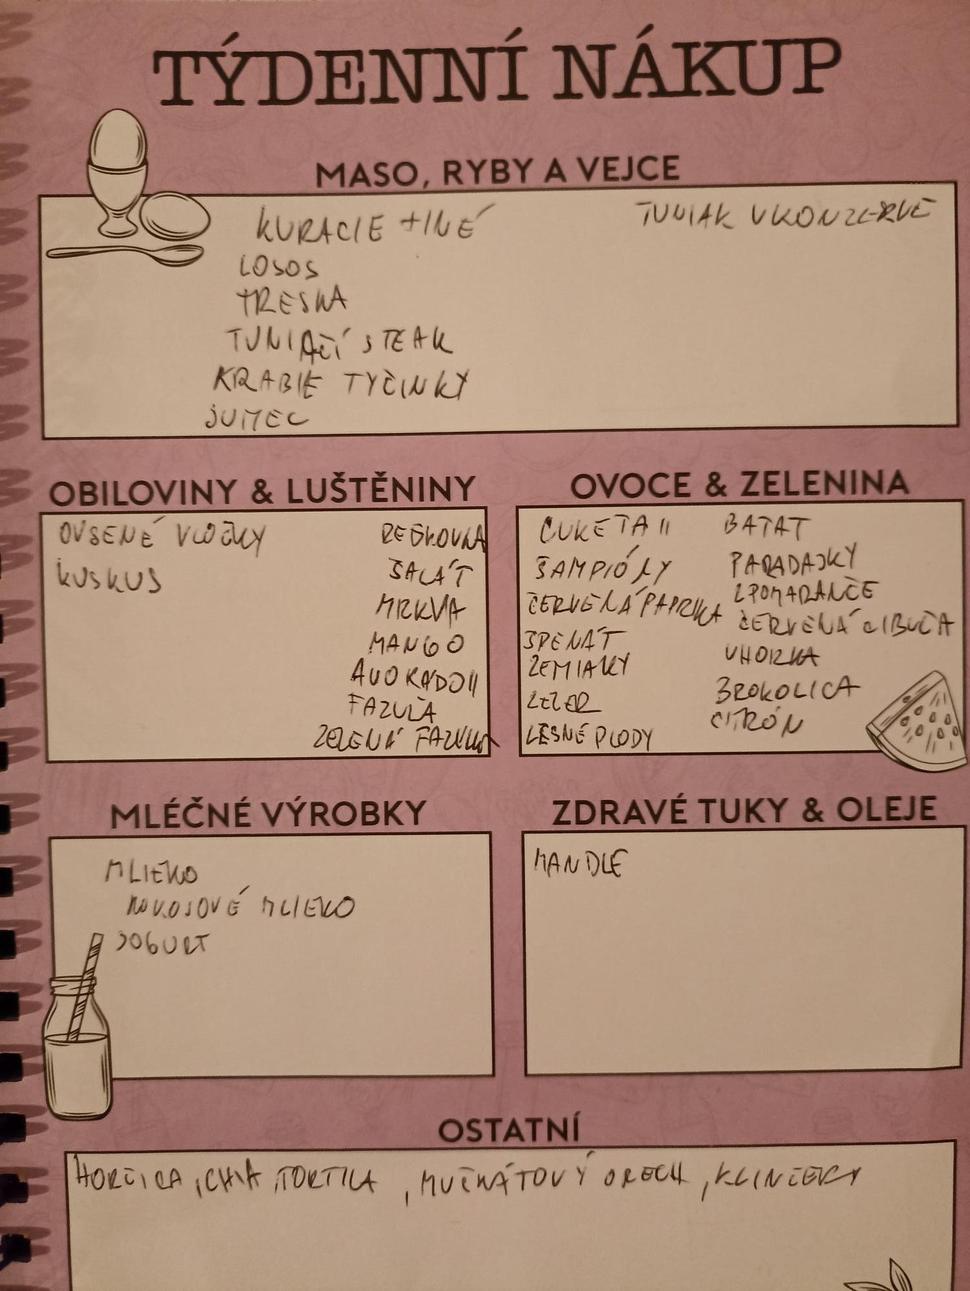 TÝDENNÍ NÁKUP
MASO, RYBY A VEJCE
KURACIE + INÉ
LOSOS
TRESKA
TUNIAČÍ STEAK
KRABIE TYČINKY
TUNIAK V KONZERVE
OBILOVINY & LUŠTĚNINY
OVSENÉ VLOČKY
KUSKUS
REĎKOVKA
ŠALÁT
MRKVA
MANGO
AVOKÁDO II
FAZUĽA
ZELENÁ FAZUĽKA
OVOCE & ZELENINA
CUKETA II
ŠAMPIÓNY
ČERVENÁ PAPRIKA
ŠPENÁT
ZEMIAKY
ZELER
LESNÉ PLODY
BATAT
PARADAJKY
2 POMARANČE
ČERVENÁ CIBUĽA
UHORKA
BROKOLICA
CITRÓN
MLÉČNÉ VÝROBKY
MLIEKO
KOKOSOVÉ MLIEKO
JOGURT
ZDRAVÉ TUKY & OLEJE
MANDLE
OSTATNÍ
HORČICA, CHIA, TORTILA, MUŠKÁTOVÝ ORECH, KLINČEKY